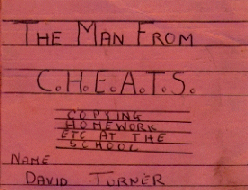 THE MAN FROM
C.H.E.A.T.S.
COPSING
HOMEWORK
ETC AT THE
SCHOOL
NAME
DAVID TURNER